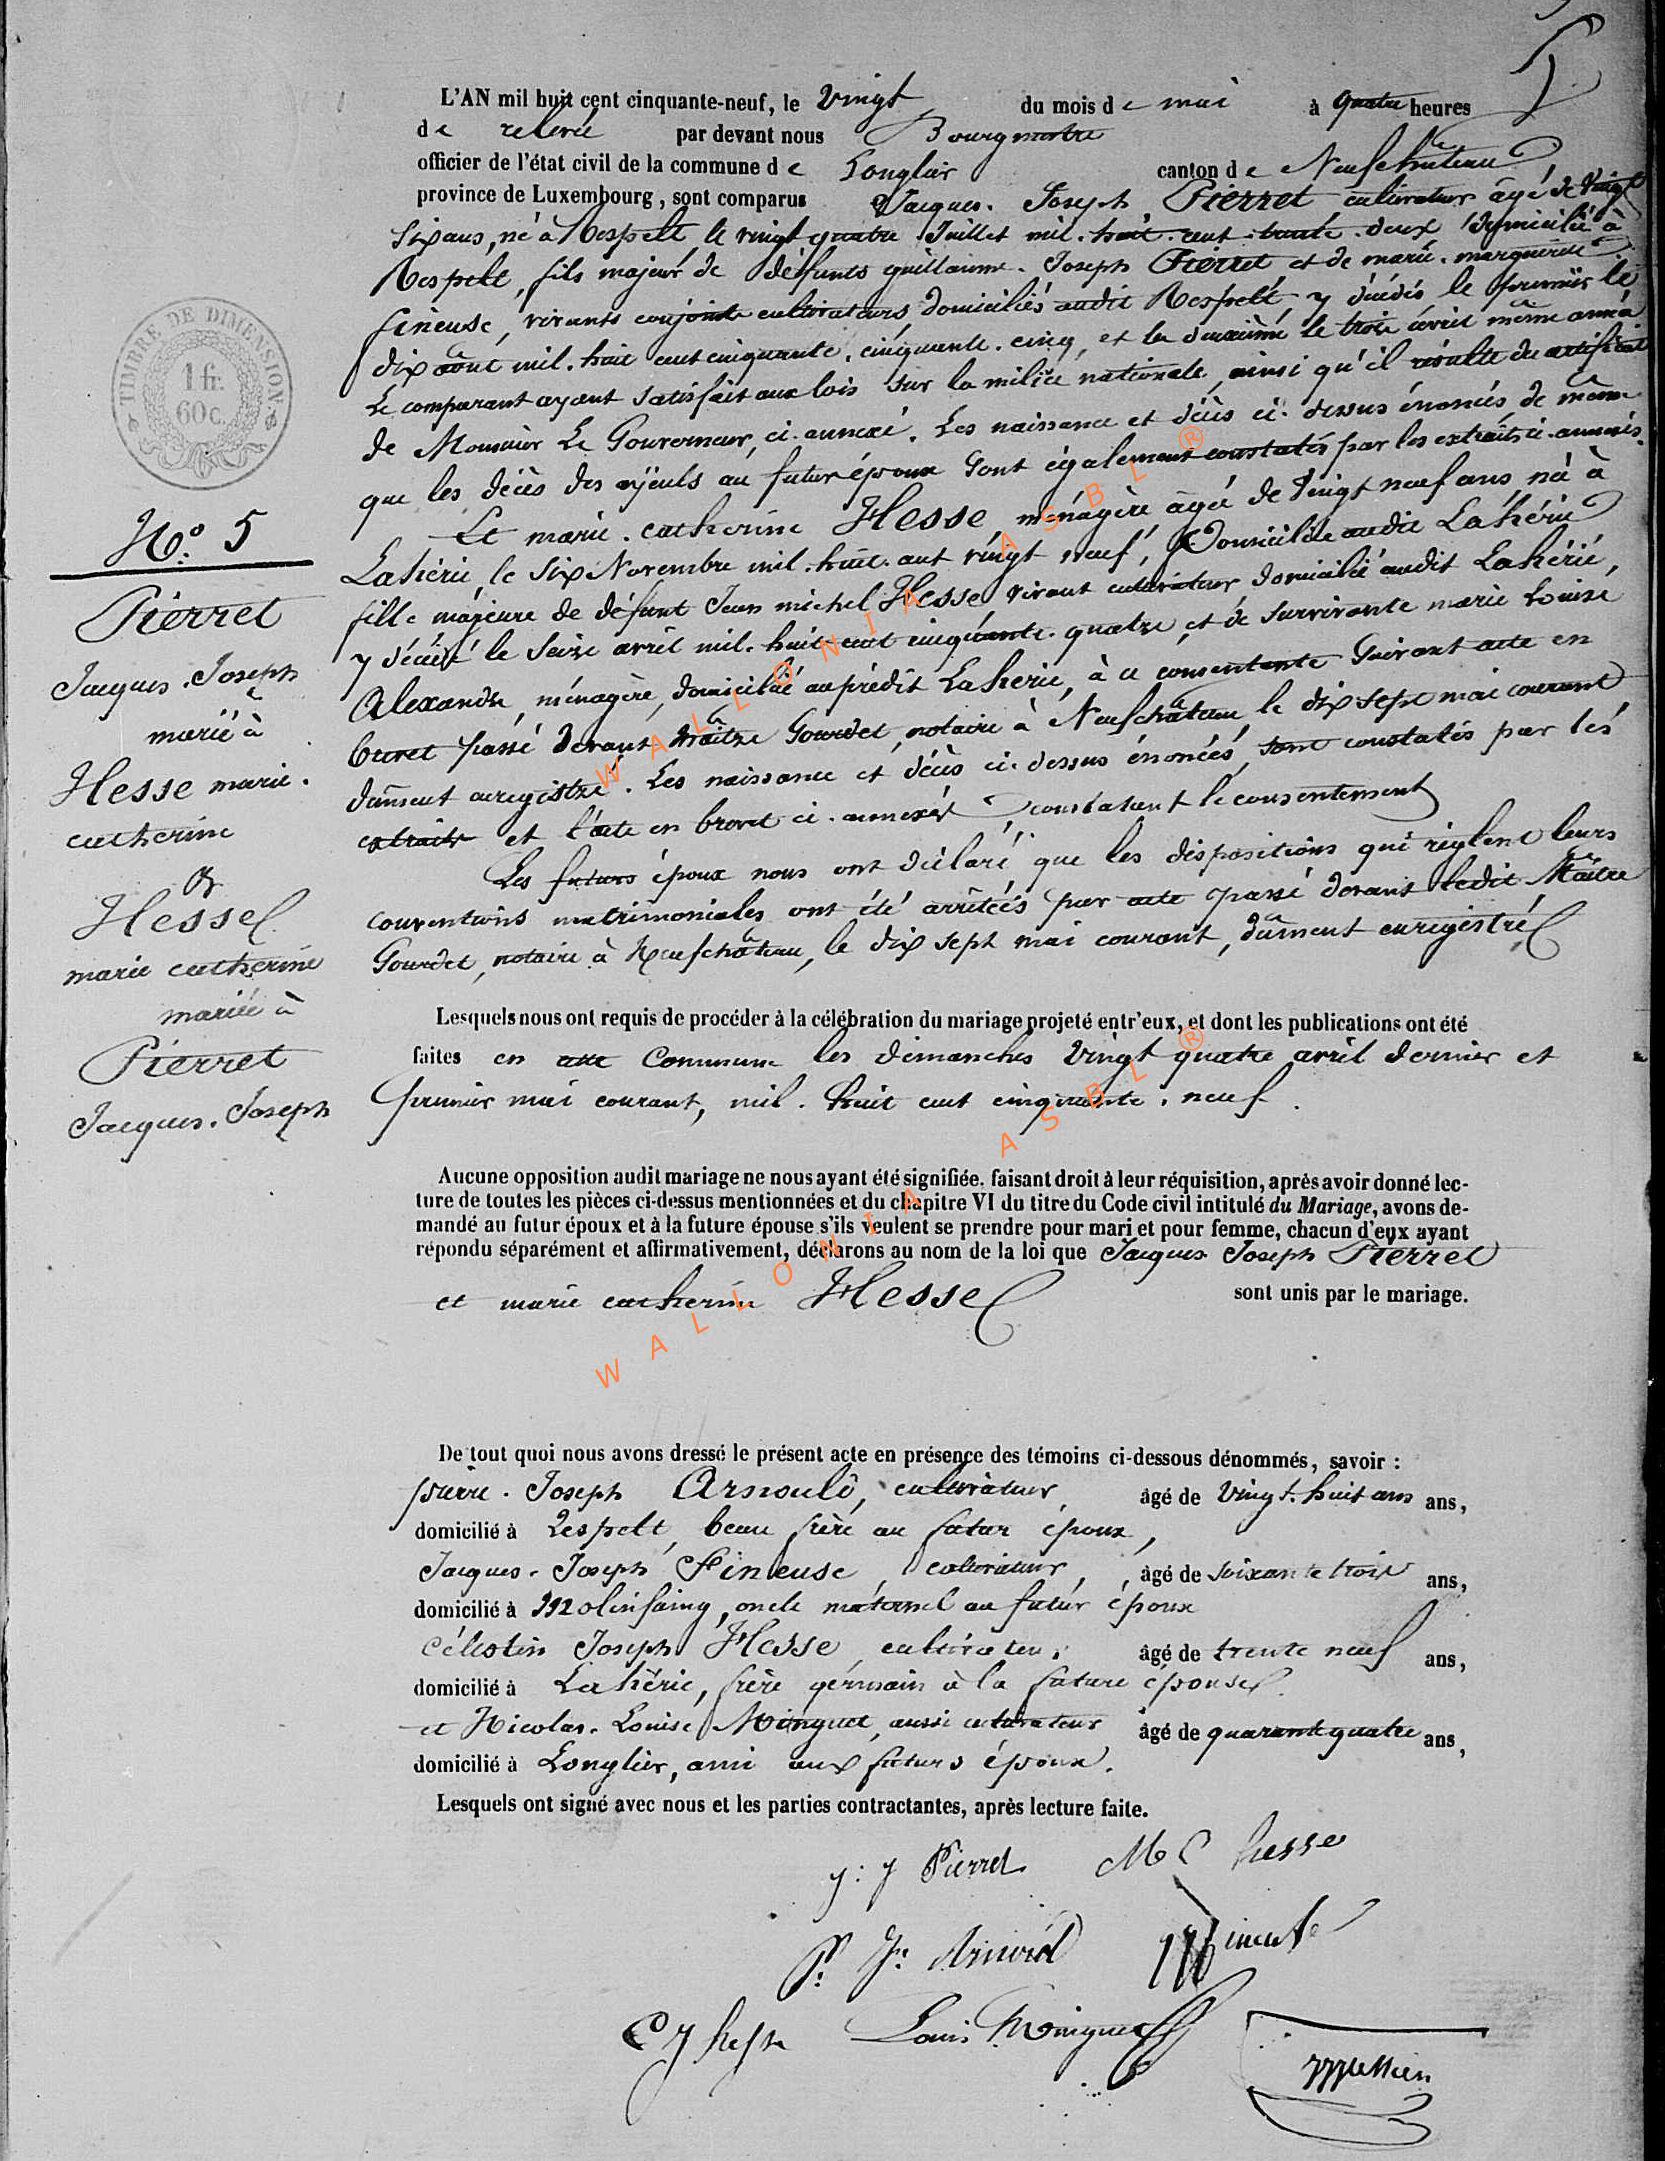 5
L'AN mil huit cent cinquante-neuf, le vingt du mois de mai à quatre heures
de relevée par devant nous Bourgmestre
officier de l'état civil de la commune de Longlier canton de Neufchâteau
province de Luxembourg, sont comparus Jacques. Joseph Pierret cultivateur âgé de vingt
six ans, né à Respelt, le vingt quatre Juillet mil. huit. cent. trente. deux domicilié à
Respelt, fils majeur de défunts guillaume. Joseph Pierret et de marie. marguerite
fineuse, vivants conjoints cultivateurs domiciliés audit Respelt, y décédés, le premier le
dix août mil. huit cent cinquante. cinquante. cinq, et la deuxième le trois avril même année
Le comparant ayant satisfait aux lois sur la milice nationale, ainsi qu'il résulte du certificat
de Monsieur Le Gouverneur, ci. annexé. Les naissance et décès ci. dessus énoncés de même
que les décès des ayeuls au futur époux sont également constatés par les extraits ci. annexés.
Et marie. catherine Hesse, ménagère âgée de vingt neuf ans né à
Lahérie, le six Novembre mil. huit. cent vingt neuf, Domiciliée audit Lahérie
fille majeure de défunt Jean michel Hesse vivant cultivateur domicilié audit Lahérie,
y décédé le seize avril mil. huit cent cinquante. quatre, et de survivante marie Louise
Alexandre, ménagère, domiciliée au prédit Lahérie, à ce consentante suivant acte en
brevet passé devant maître Gourdet, notaire à Neufchâteau, le dix sept mai courant
dûment enregistré. Les naissance et décès ci. dessus énoncés, sont constatés par les
extraits et l'acte en brevet ci. annexés constatant le consentement
Les futurs époux nous ont déclaré que les dispositions qui règlent leurs
conventions matrimoniales ont été arrêtées par acte passé devant ledit Maître
Gourdet, notaire à Neufchâteau, le dix sept mai courant, dûment enregistré
Lesquels nous ont requis de procéder à la célébration du mariage projeté entr'eux, et dont les publications ont été
faites en cette Commune les dimanches vingt quatre avril dernier et
premier mai courant, mil. huit cent cinquante. neuf.
Aucune opposition audit mariage ne nous ayant été signifiée, faisant droit à leur réquisition, après avoir donné lec-
ture de toutes les pièces ci-dessus mentionnées et du chapitre VI du titre du Code civil intitulé du Mariage, avons de-
mandé au futur époux et à la future épouse s'ils veulent se prendre pour mari et pour femme, chacun d'eux ayant
répondu séparément et affirmativement, déclarons au nom de la loi que Jacques Joseph Pierret
et marie catherine Hesse sont unis par le mariage.
De tout quoi nous avons dressé le présent acte en présence des témoins ci-dessous dénommés, savoir :
pierre. Joseph Arnould, cultivateur, âgé de vingt. huit ans ans,
domicilié à Respelt, beau frère au futur époux,
Jacques. Joseph Fineuse, cultivateur, âgé de soixante trois ans,
domicilié à Molinfaing, oncle maternel au futur époux
Célestin Joseph Hesse, cultivateur. âgé de trente neuf ans,
domicilié à Lahérie, frère germain à la future épouse
et Nicolas. Louise Minguet, aussi cultivateur âgé de quarante quatre ans,
domicilié à Longlier, ami aux futurs époux.
Lesquels ont signé avec nous et les parties contractantes, après lecture faite.
J: J Pierret M C hesse
P: Jh: Arnould
C J hesse Louis Minguet
TIMBRE DE DIMENSION
1 fr.
60 c.
N.° 5
Pierret
Jacques. Joseph
marié à
Hesse marie.
catherine
&
Hesse
marie catherine
mariée à
Pierret
Jacques. Joseph
WALLONIA ASBL ®
WALLONIA ASBL ®